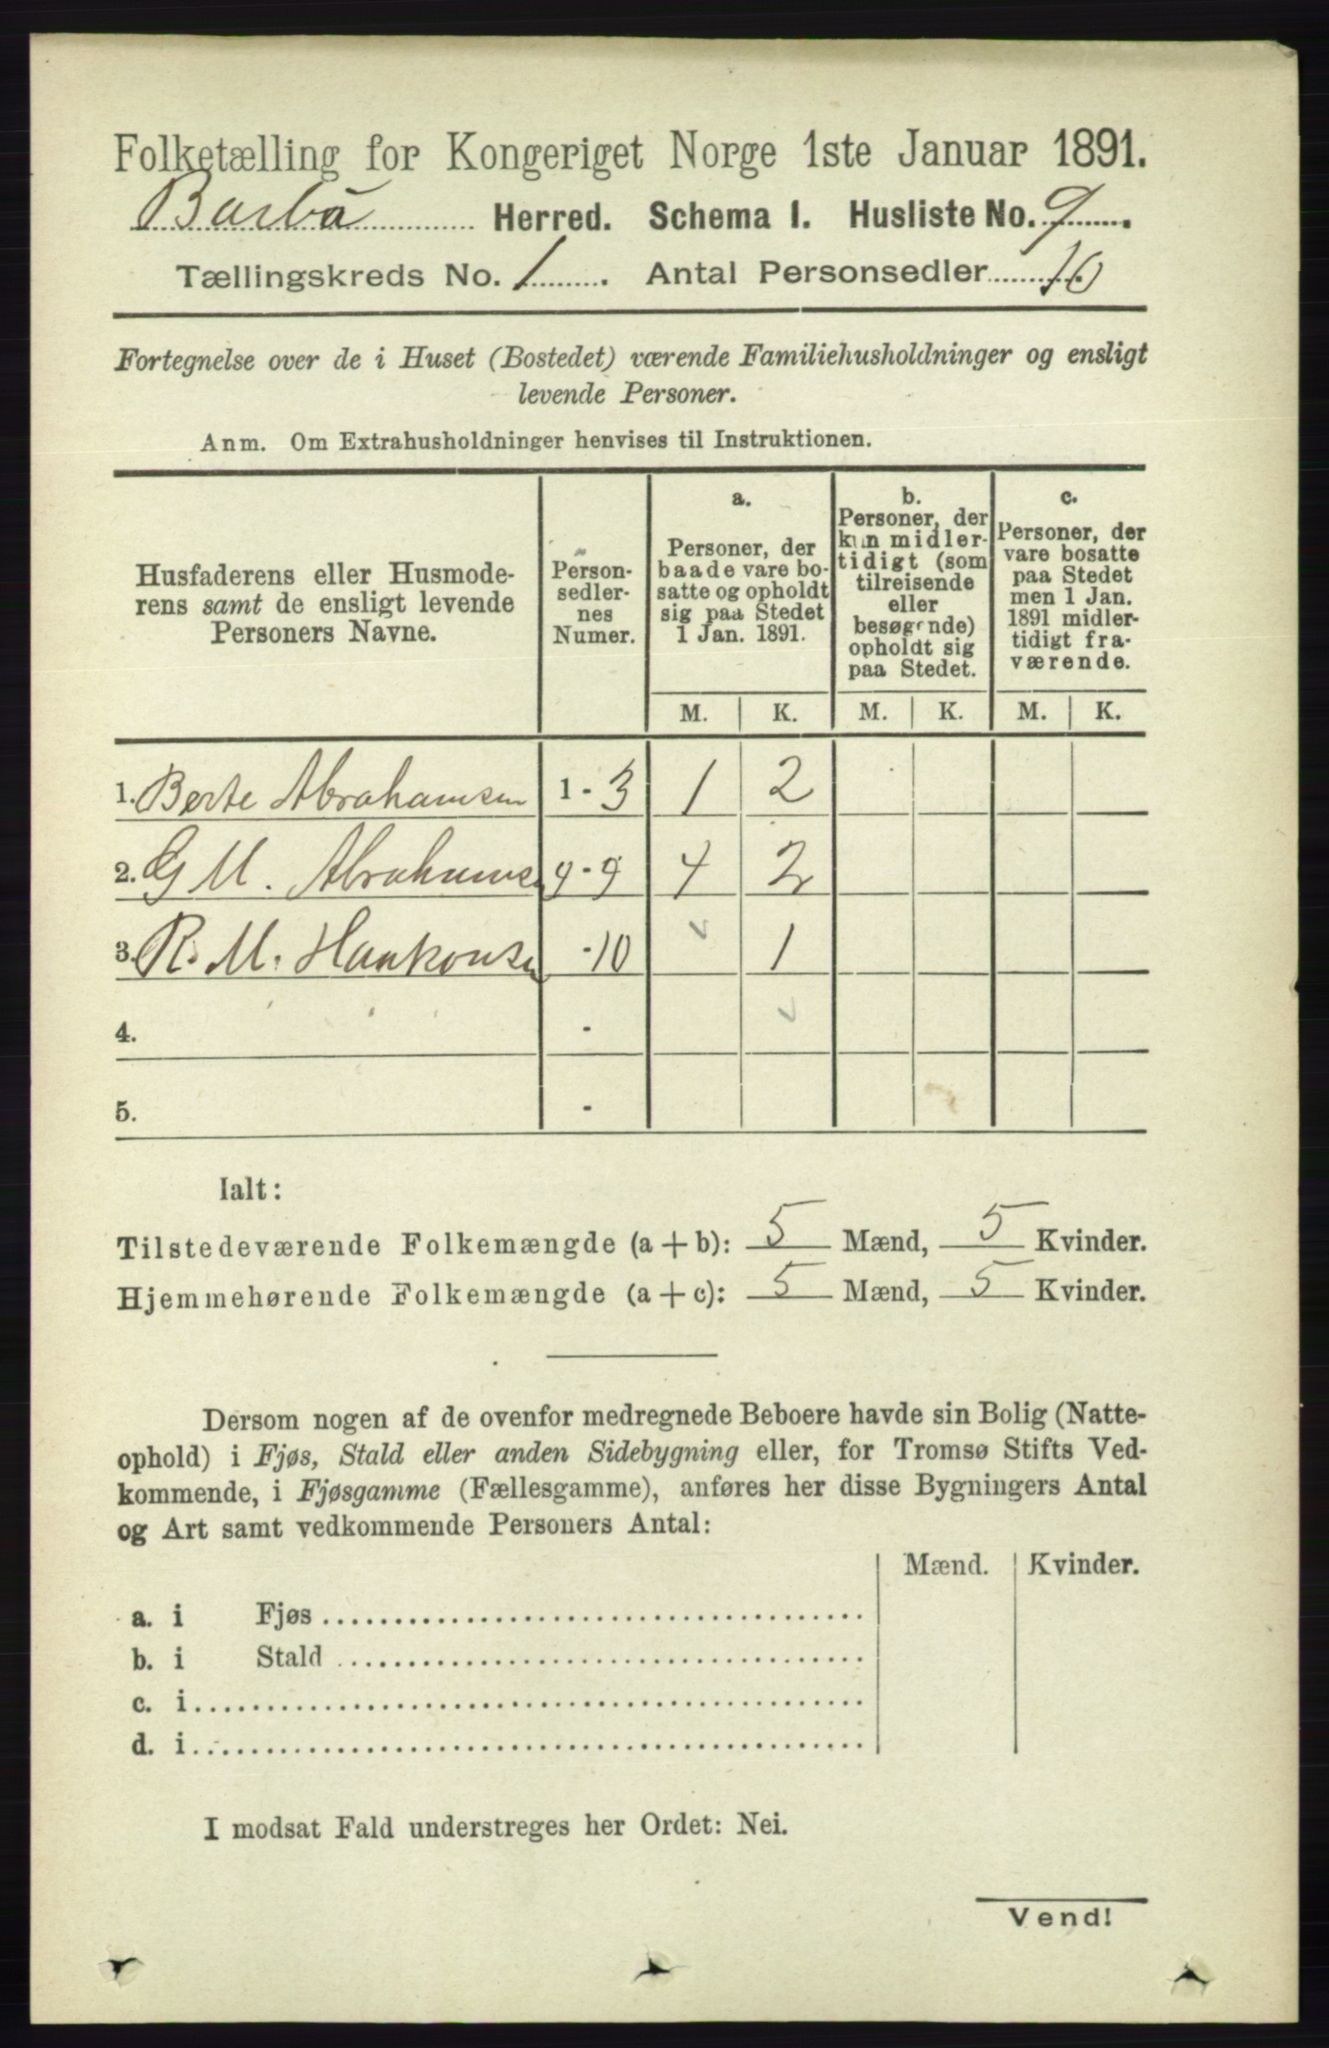 Folketælling for Kongeriget Norge 1ste Januar 1891.
Barbu Herred. Schema I. Husliste No. 9.
Tællingskreds No. 1. Antal Personsedler 10
Fortegnelse over de i Huset (Bostedet) værende Familiehusholdninger og ensligt
levende Personer.
Anm. Om Extrahusholdninger henvises til Instruktionen.
Husfaderens eller Husmode-
rens samt de ensligt levende
Personers Navne.
Person-
sedler-
nes
Numer.
a.
Personer, der
baade vare bo-
satte og opholdt
sig paa Stedet
1 Jan. 1891.
b.
Personer, der
kun midler-
tidigt (som
tilreisende
eller
besøgende)
opholdt sig
paa Stedet.
c.
Personer, der
vare bosatte
paa Stedet
men 1 Jan.
1891 midler-
tidigt fra-
værende.
M. K. M. K. M. K.
1. Berte Abrahamsen 1 - 3 1 2
2. G M. Abrahamse 9 - 9 4 2
3. R. M. Haakonse - 10 1
4. -
5. -
Ialt:
Tilstedeværende Folkemængde (a + b): 5 Mænd, 5 Kvinder.
Hjemmehørende Folkemængde (a + c): 5 Mænd, 5 Kvinder.
Dersom nogen af de ovenfor medregnede Beboere havde sin Bolig (Natte-
ophold) i Fjøs, Stald eller anden Sidebygning eller, for Tromsø Stifts Ved-
kommende, i Fjøsgamme (Fællesgamme), anføres her disse Bygningers Antal
og Art samt vedkommende Personers Antal:
Mænd. Kvinder.
a. i Fjøs
b. i Stald
c. i
d. i
I modsat Fald understreges her Ordet: Nei.
Vend!